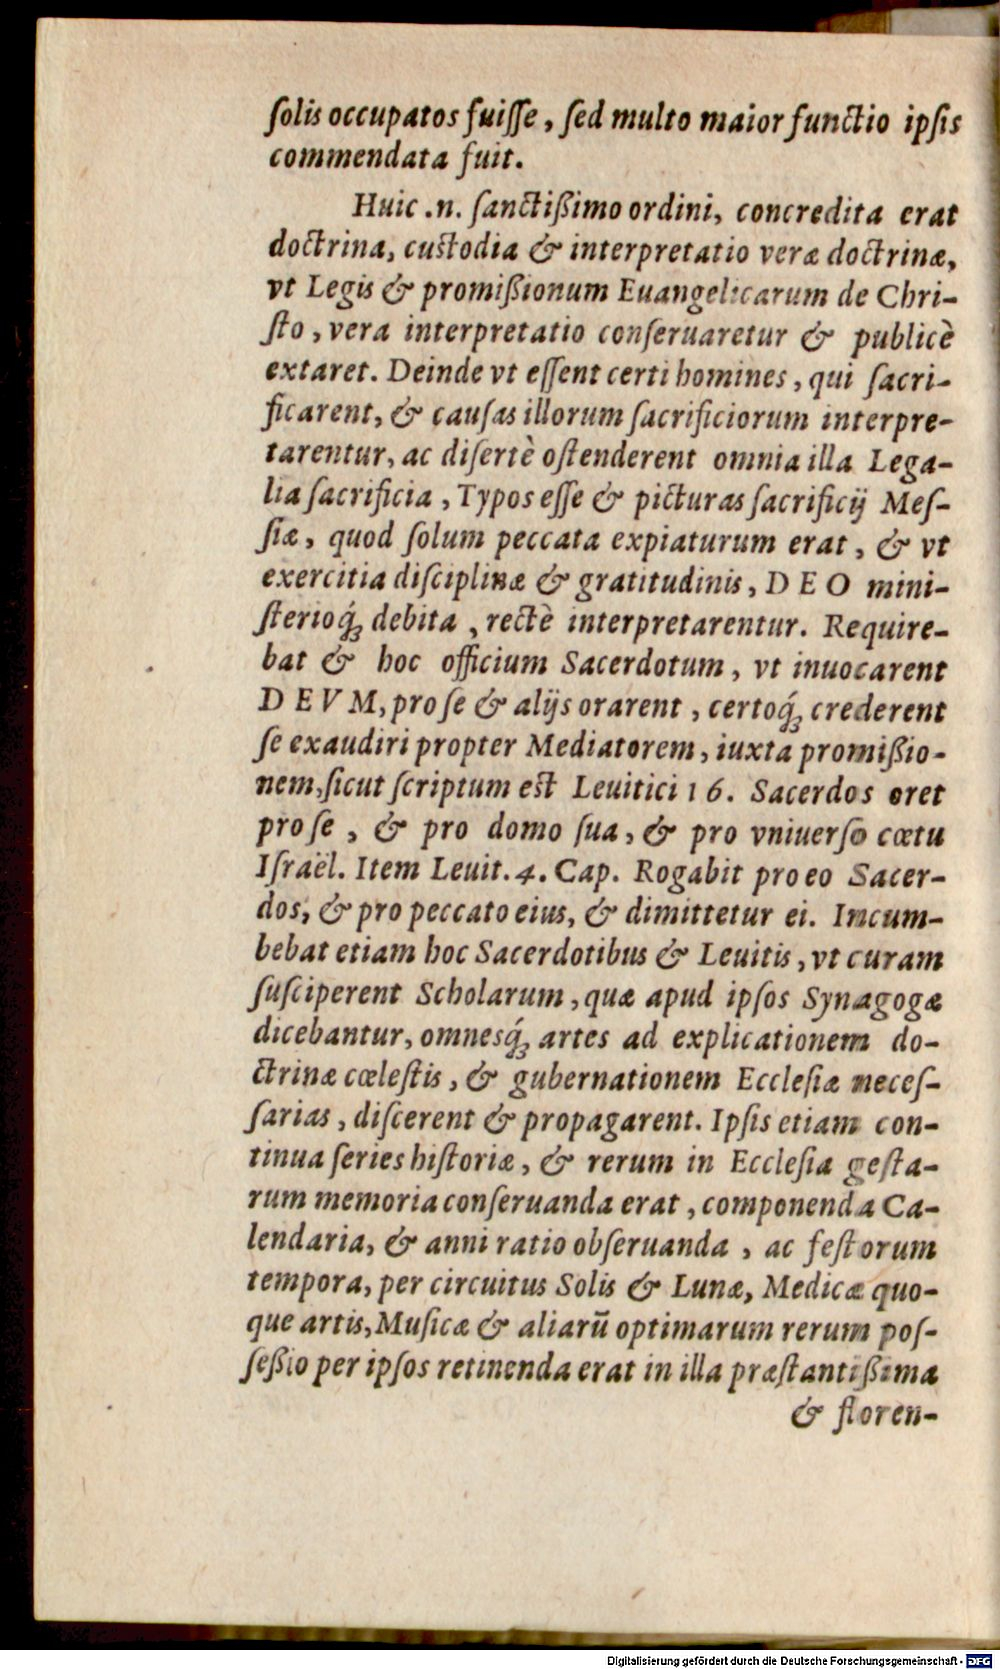 ſolis occupatos fuiſſe, ſed multo maior functio ipſis
commendata fuit.
Huic .n. ſanctißimo ordini, concredita erat
doctrina, custodia & interpretatio veræ doctrinæ,
vt Legis & promißionum Euangelicarum de Chri-
ſto, vera interpretatio conſeruaretur & publicè
extaret. Deinde vt eſſent certi homines, qui ſacri-
ficarent, & cauſas illorum ſacrificiorum interpre-
tarentur, ac diſertè oſtenderent omnia illa Lega-
lia ſacrificia, Typos eſſe & picturas ſacrificij Meſ-
ſiæ, quod ſolum peccata expiaturum erat, & vt
exercitia diſciplinæ & gratitudinis, DEO mini-
ſterioq́ꝫ debita, rectè interpretarentur. Require-
bat & hoc officium Sacerdotum, vt inuocarent
DEVM, pro ſe & alijs orarent, certoq́ꝫ crederent
ſe exaudiri propter Mediatorem, iuxta promißio-
nem, ſicut ſcriptum est Leuitici 16. Sacerdos oret
pro ſe, & pro domo ſua, & pro vniuerſo cœtu
Iſraël. Item Leuit. 4. Cap. Rogabit pro eo Sacer-
dos, & pro peccato eius, & dimittetur ei. Incum-
bebat etiam hoc Sacerdotibus & Leuitis, vt curam
ſuſciperent Scholarum, quæ apud ipſos Synagogæ
dicebantur, omnesq́ꝫ artes ad explicationem do-
ctrinæ cœleſtis, & gubernationem Eccleſiæ neceſ-
ſarias, diſcerent & propagarent. Ipſis etiam con-
tinua ſeries hiſtoriæ, & rerum in Eccleſia geſta-
rum memoria conſeruanda erat, componenda Ca-
lendaria, & anni ratio obſeruanda, ac feſtorum
tempora, per circuitus Solis & Lunæ, Medicæ quo-
que artis, Muſicæ & aliarū optimarum rerum poſ-
ſeßio per ipſos retinenda erat in illa præſtantißima
& floren-
Digitalisierung gefördert durch die Deutsche Forschungsgemeinschaft - DFG